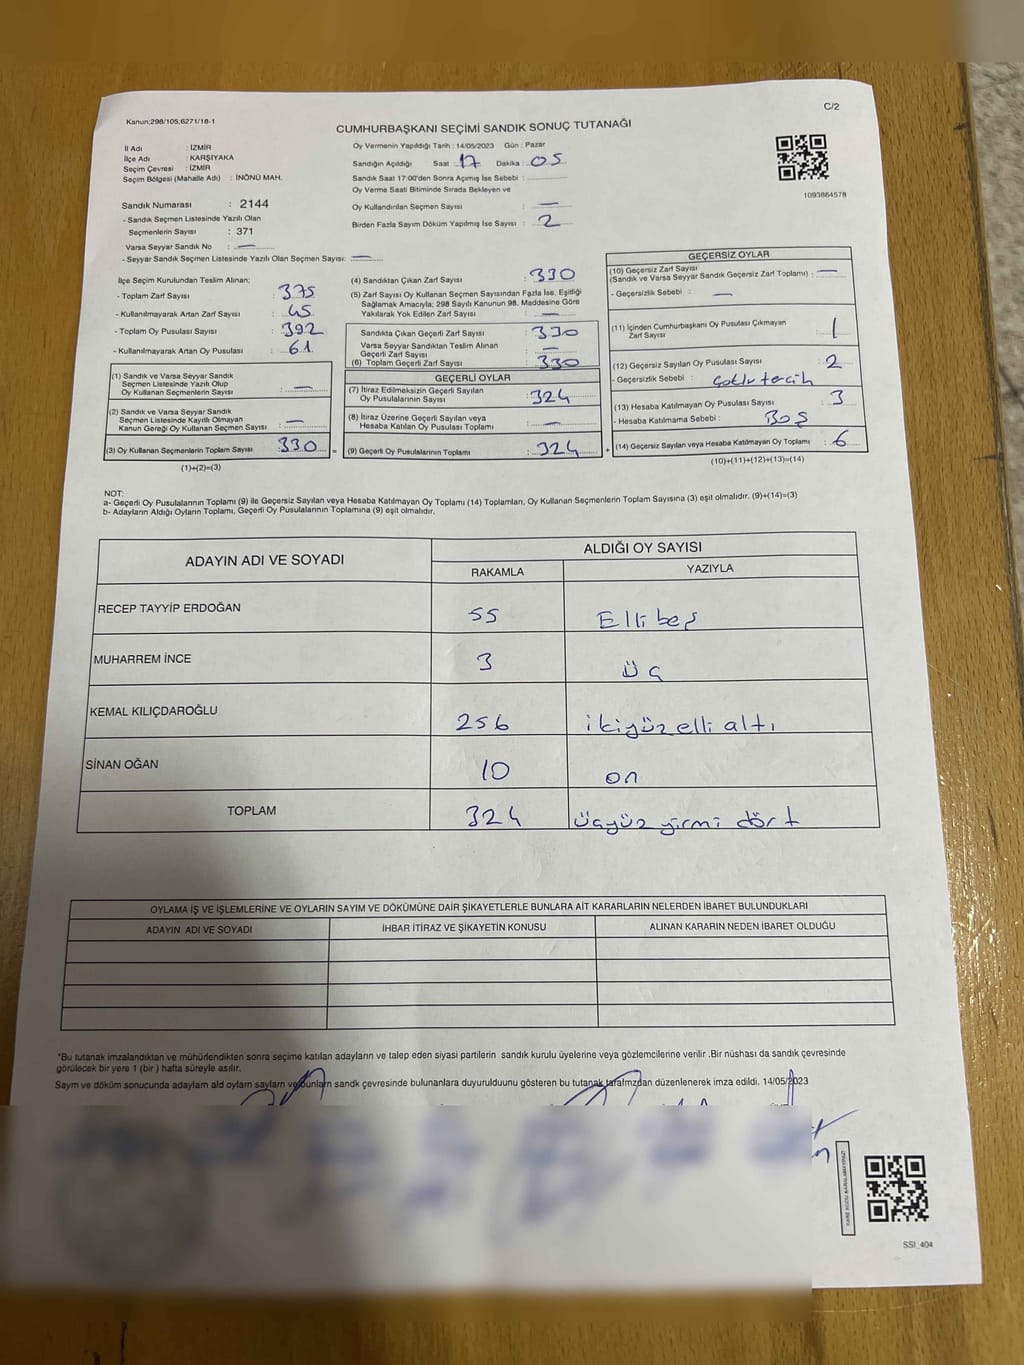 C/2
Kanun;298/105;6271/18-1
CUMHURBAŞKANI SEÇİMİ SANDIK SONUÇ TUTANAĞI
İl Adı : İZMİR
İlçe Adı : KARŞIYAKA
Seçim Çevresi : İZMİR
Seçim Bölgesi (Mahalle Adı) : İNÖNÜ MAH.
Sandık Numarası : 2144
- Sandık Seçmen Listesinde Yazılı Olan
Seçmenlerin Sayısı : 371
Varsa Seyyar Sandık No : —
- Seyyar Sandık Seçmen Listesinde Yazılı Olan Seçmen Sayısı: —
Oy Vermenin Yapıldığı Tarih : 14/05/2023 Gün : Pazar
Sandığın Açıldığı Saat : 17 Dakika : 05
Sandık Saat 17:00'den Sonra Açımış İse Sebebi :
Oy Verme Saati Bitiminde Sırada Bekleyen ve
Oy Kullandırılan Seçmen Sayısı : —
Birden Fazla Sayım Döküm Yapılmış İse Sayısı : 2
1093864578
İlçe Seçim Kurulundan Teslim Alınan;
- Toplam Zarf Sayısı : 375
- Kullanılmayarak Artan Zarf Sayısı : 45
- Toplam Oy Pusulası Sayısı : 392
- Kullanılmayarak Artan Oy Pusulası : 61
(1) Sandık ve Varsa Seyyar Sandık
Seçmen Listesinde Yazılı Olup
Oy Kullanan Seçmenlerin Sayısı : —
(2) Sandık ve Varsa Seyyar Sandık
Seçmen Listesinde Kayıtlı Olmayan
Kanun Gereği Oy Kullanan Seçmen Sayısı : —
(3) Oy Kullanan Seçmenlerin Toplam Sayısı : 330
(1)+(2)=(3)
(4) Sandıktan Çıkan Zarf Sayısı : 330
(5) Zarf Sayısı Oy Kullanan Seçmen Sayısından Fazla İse, Eşitliği
Sağlamak Amacıyla; 298 Sayılı Kanunun 98. Maddesine Göre
Yakılarak Yok Edilen Zarf Sayısı : —
Sandıkta Çıkan Geçerli Zarf Sayısı : 330
Varsa Seyyar Sandıktan Teslim Alınan
Geçerli Zarf Sayısı : —
(6) Toplam Geçerli Zarf Sayısı : 330
GEÇERLİ OYLAR
(7) İtiraz Edilmeksizin Geçerli Sayılan
Oy Pusulalarının Sayısı : 324
(8) İtiraz Üzerine Geçerli Sayılan veya
Hesaba Katılan Oy Pusulası Toplamı : —
= (9) Geçerli Oy Pusulalarının Toplamı : 324
GEÇERSİZ OYLAR
(10) Geçersiz Zarf Sayısı
(Sandık ve Varsa Seyyar Sandık Geçersiz Zarf Toplamı) : —
- Geçersizlik Sebebi : —
(11) İçinden Cumhurbaşkanı Oy Pusulası Çıkmayan
Zarf Sayısı : 1
(12) Geçersiz Sayılan Oy Pusulası Sayısı : 2
- Geçersizlik Sebebi : çoklu tercih
(13) Hesaba Katılmayan Oy Pusulası Sayısı : 3
- Hesaba Katılmama Sebebi : Boş
+ (14) Geçersiz Sayılan veya Hesaba Katılmayan Oy Toplamı : 6
(10)+(11)+(12)+(13)=(14)
NOT:
a- Geçerli Oy Pusulalarının Toplamı (9) ile Geçersiz Sayılan veya Hesaba Katılmayan Oy Toplamı (14) Toplamları, Oy Kullanan Seçmenlerin Toplam Sayısına (3) eşit olmalıdır. (9)+(14)=(3)
b- Adayların Aldığı Oyların Toplamı, Geçerli Oy Pusulalarının Toplamına (9) eşit olmalıdır.
ADAYIN ADI VE SOYADI ALDIĞI OY SAYISI
RAKAMLA YAZIYLA
RECEP TAYYİP ERDOĞAN 55 Elli beş
MUHARREM İNCE 3 üç
KEMAL KILIÇDAROĞLU 256 ikiyüz elli altı
SİNAN OĞAN 10 on
TOPLAM 324 üçyüz yirmi dört
OYLAMA İŞ VE İŞLEMLERİNE VE OYLARIN SAYIM VE DÖKÜMÜNE DAİR ŞİKAYETLERLE BUNLARA AİT KARARLARIN NELERDEN İBARET BULUNDUKLARI
ADAYIN ADI VE SOYADI İHBAR İTİRAZ VE ŞİKAYETİN KONUSU ALINAN KARARIN NEDEN İBARET OLDUĞU
*Bu tutanak imzalandıktan ve mühürlendikten sonra seçime katılan adayların ve talep eden siyasi partilerin sandık kurulu üyelerine veya gözlemcilerine verilir .Bir nüshası da sandık çevresinde
görülecek bir yere 1 (bir ) hafta süreyle asılır.
Sayım ve döküm sonucunda adayların ald oyların sayıların ve bunların sandk çevresinde bulunanlara duyurulduunu gösteren bu tutanak tarafmzdan düzenlenerek imza edildi. 14/05/2023
SSI_404